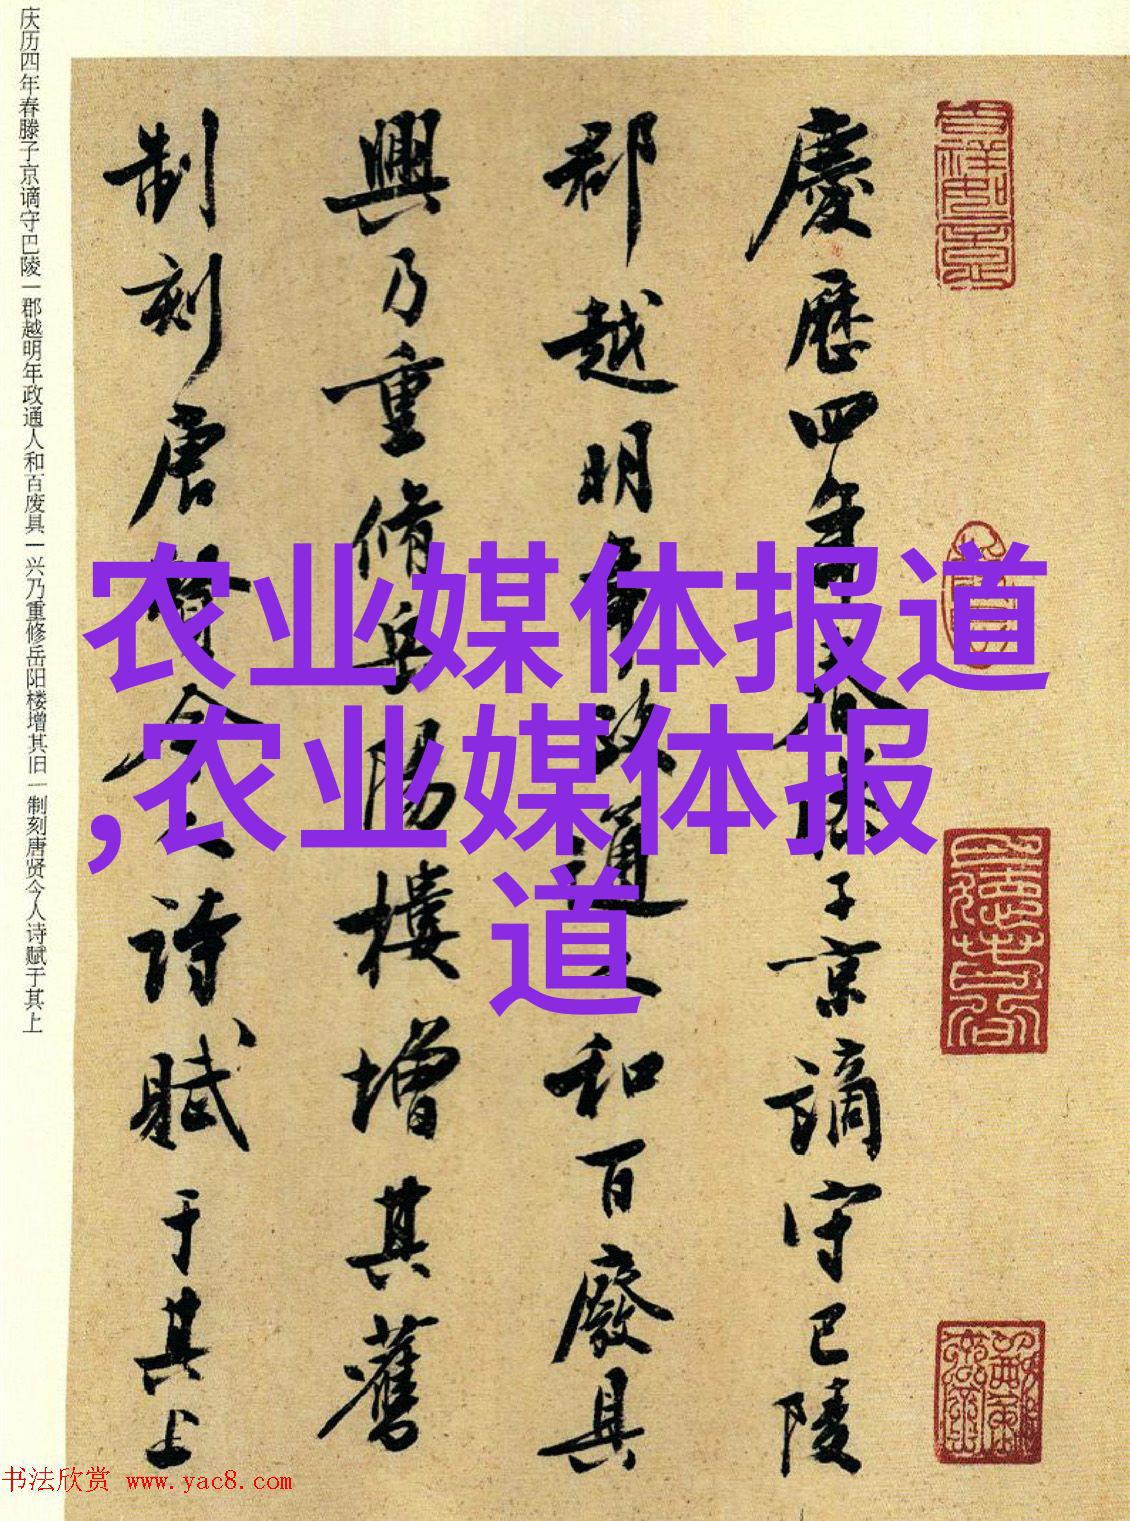 慶歷四年春滕子京謫守巴陵
郡越明年政通人和百廢具
興乃重脩岳陽樓增其舊
制刻唐賢今人詩賦于其上
庆历四年春滕子京谪守巴陵一郡越明年政通人和百废具一兴乃重修岳阳楼增其旧一制刻唐贤今人诗赋于其上
农业媒体报道
,农业媒体报
道
书法欣赏 www.yac8.com